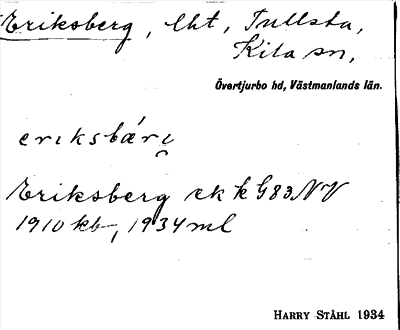 Eriksberg, lht, Tullsta,
Kila sn,
Övertjurbo hd, Västmanlands län.
eriksbári̯
Eriksberg ek k G83NV
1910 kb, 1934 ml
HARRY STÅHL 1934